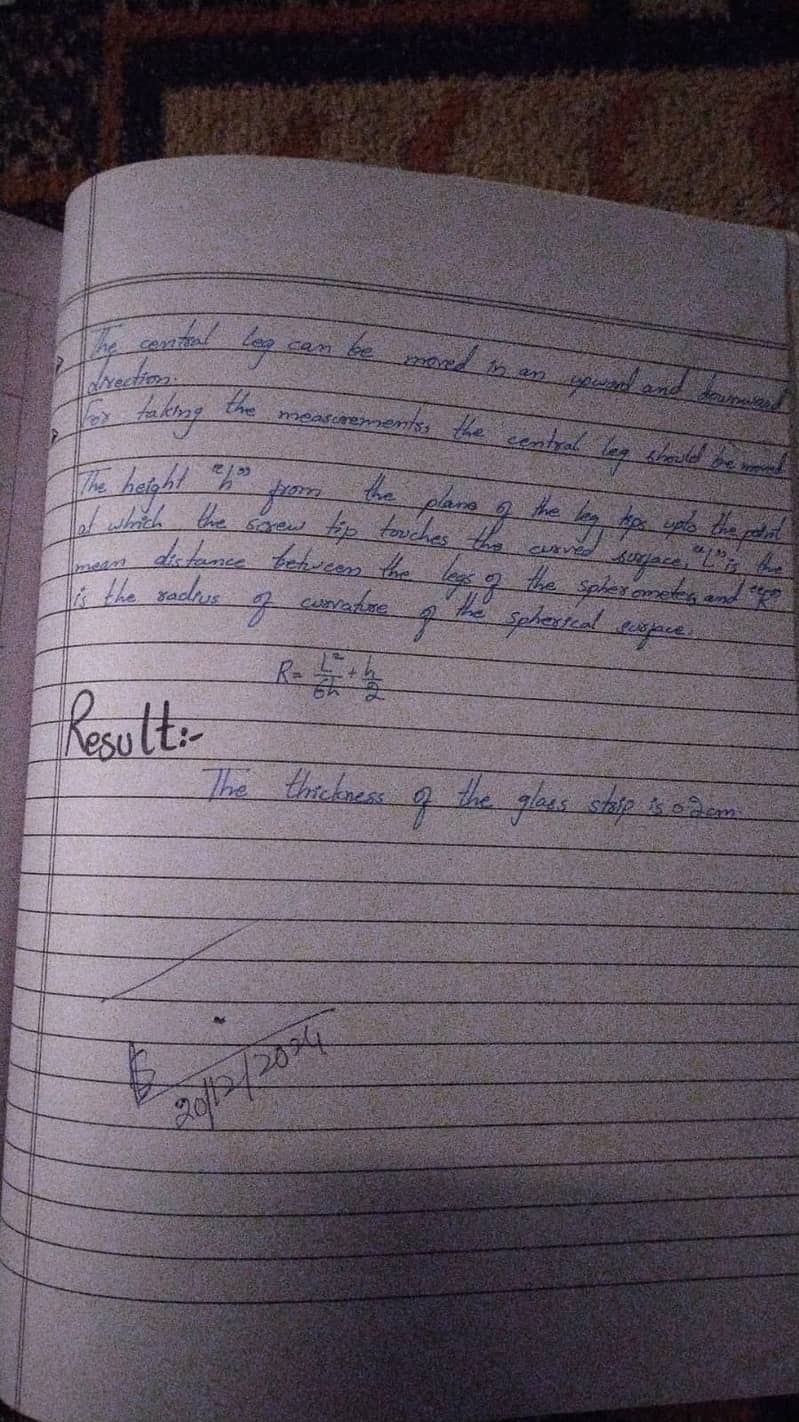 The central leg can be moved in an upward and downward
direction.
For taking the measurements, the central leg should be moved
The height "h" from the plane of the leg tips upto the point
at which the screw tip touches the curved surface, "L" is the
mean distance between the legs of the spherometer, and "R"
is the radius of curvature of the spherical surface.
R = L²/6h + h/2
Result:-
The thickness of the glass strip is 0.2cm.
20/12/2024